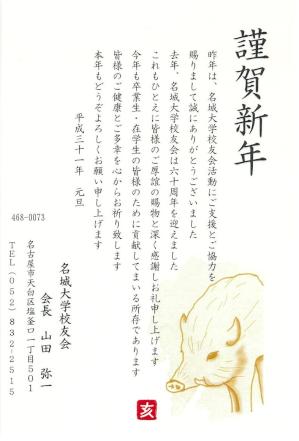 謹賀新年
昨年は、名城大学校友会活動にご支援とご協力を
賜りまして誠にありがとうございました
去年、名城大学校友会は六十周年を迎えました
これもひとえに皆様のご厚誼の賜物と深く感謝しお礼申し上げます
今年も卒業生・在学生の皆様のために貢献してまいる所存であります
皆様のご健康とご多幸を心からお祈り致します
本年もどうぞよろしくお願い申し上げます
平成三十一年 元旦
468-0073
名城大学校友会
会長 山田 弥一
名古屋市天白区塩釜口一丁目501
TEL(052)832-2515
亥